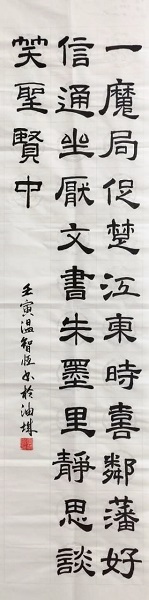 一魔局促楚江東時喜鄰藩好
信通坐厭文書朱墨里靜思談
笑聖賢中
壬寅温智恒書於油城